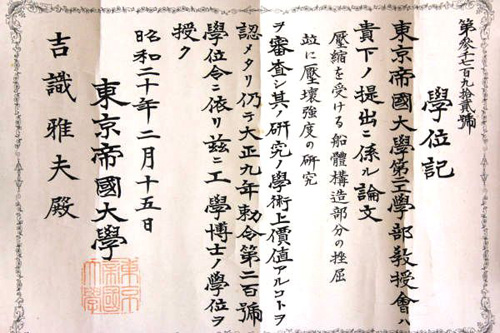 第參千七百九拾貳號
學位記
東京帝國大學第二工學部敎授會ハ
貴下ノ提出ニ係ル論文
壓縮を受ける船體構造部分の挫屈
竝に壓壞强度の硏究
ヲ審査シ其ノ硏究ノ學術上價値アルコトヲ
認メタリ仍テ大正九年勅令第二百號
學位令ニ依リ玆ニ工學博士ノ學位ヲ
授ク
昭和二十年二月十五日
東京帝國大學
吉識雅夫殿
東京帝國大學